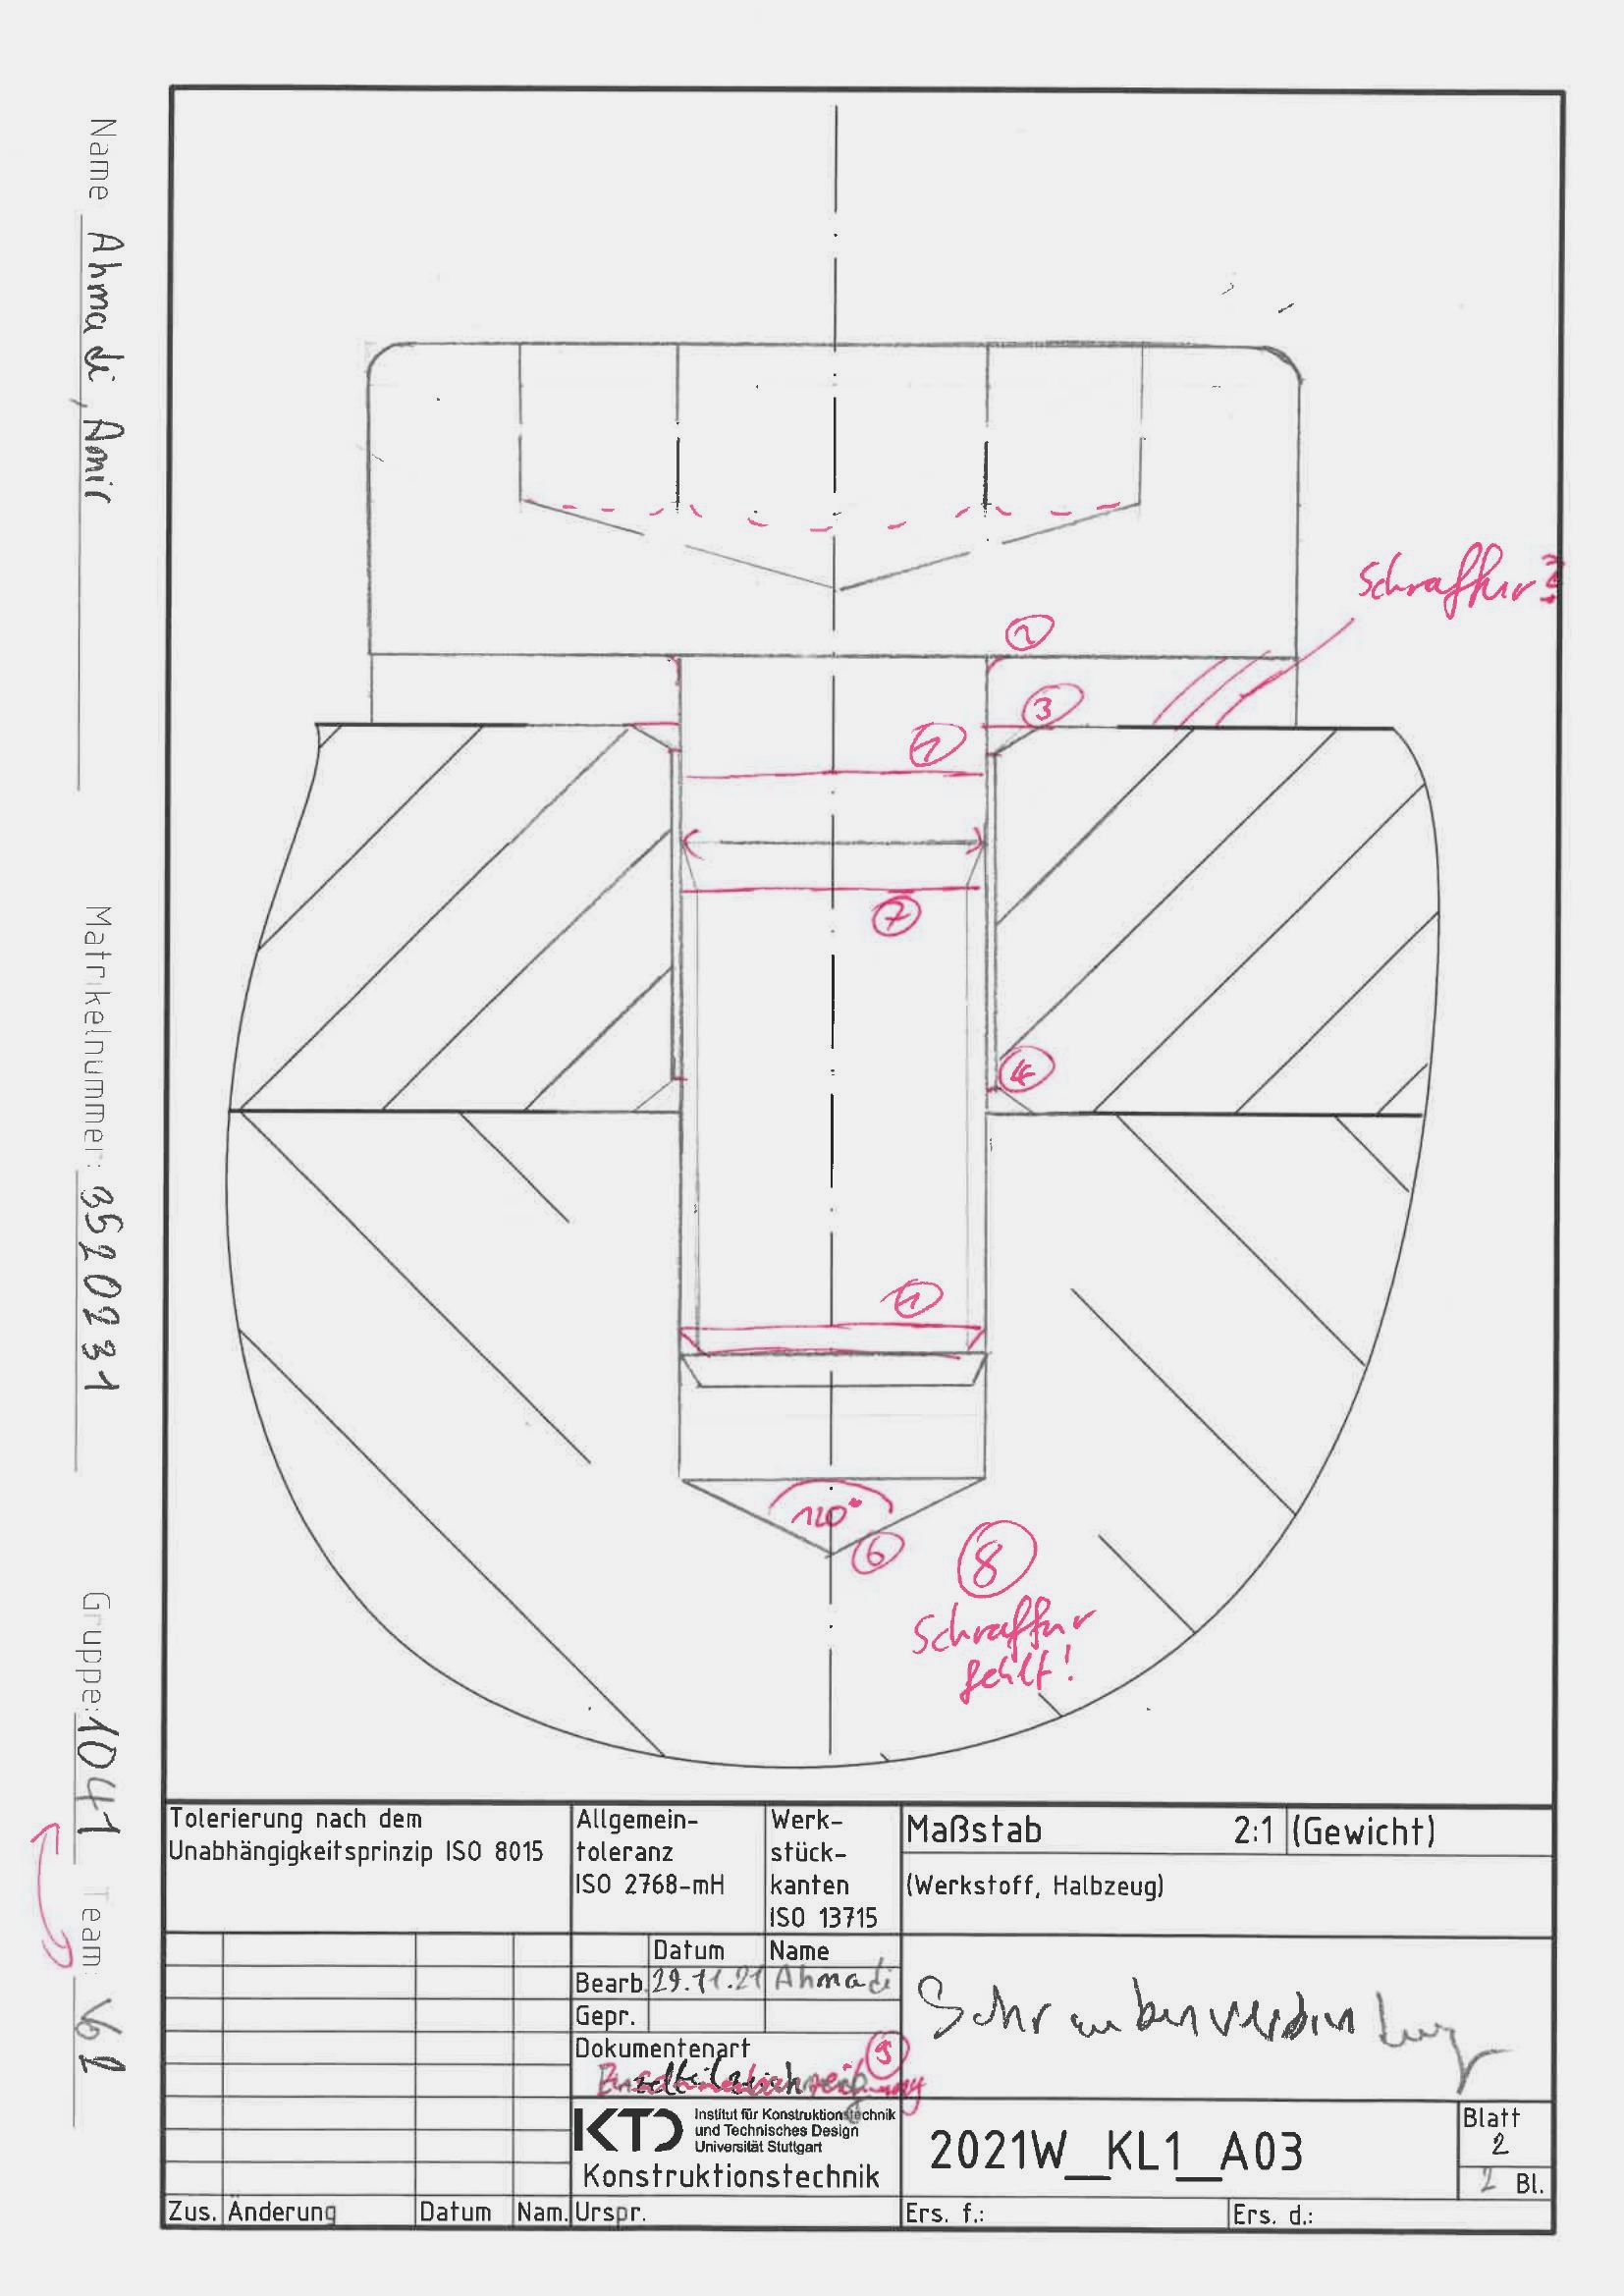 Name Ahmadi, Amir
Matrikelnummer: 3520231
Gruppe: 1041 Team: V62
Schraffur?
2
3
1
7
4
1
120°
6
8
Schraffur
fehlt!
Tolerierung nach dem
Unabhängigkeitsprinzip ISO 8015
Allgemein-
toleranz
ISO 2768-mH
Werk-
stück-
kanten
ISO 13715
Maßstab 2:1 (Gewicht)
(Werkstoff, Halbzeug)
Datum Name
Bearb. 29.11.21 Ahmadi
Gepr.
Dokumentenart
9
Schraubenverbindung
KTD
Institut für Konstruktionstechnik
und Technisches Design
Universität Stuttgart
Konstruktionstechnik
2021W_KL1_A03
Blatt
2
2 Bl.
Zus. Änderung Datum Nam. Urspr. Ers. f.: Ers. d.: